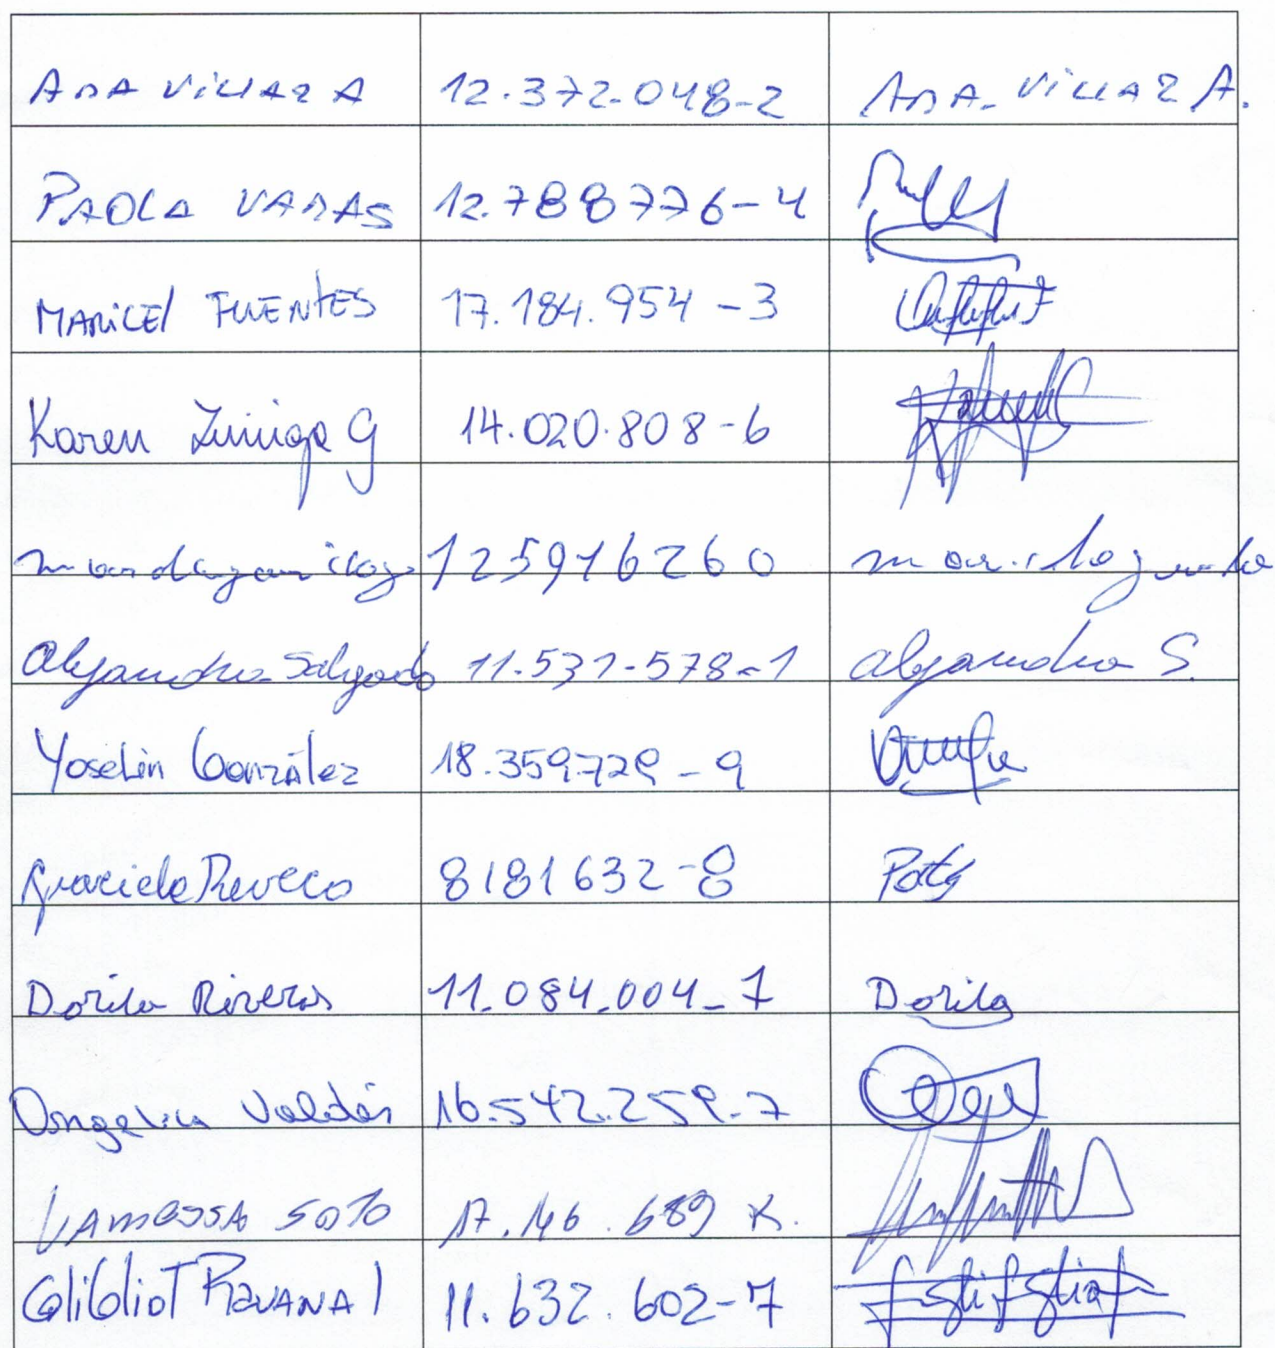 ANA VILLAR A 12.372.048-2 ANA. VILLAR A.
PAOLA VARAS 12.788776-4
MARICEl FUENTES 17.184.954-3
Karen Zuñiga G 14.020.808-6
125916260
Alejandra Salgado 11.531-578-1 Alejandra S.
Yoselin González 18.359729-9
Graciela Reveco 8181632-8 Paty
Dorila Riveros 11.084.004-7 Dorila
Angelica Valdés 16.542.259-7
Vanessa Soto 17.146.689 K.
RAVANAl 11.632.602-7